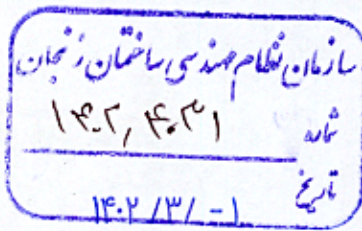 سازمان نظام مهندسی ساختمان زنجان
شماره ۱۴۰۲,۴۰۳۱
تاریخ
۱۴۰۲/۳/-۱